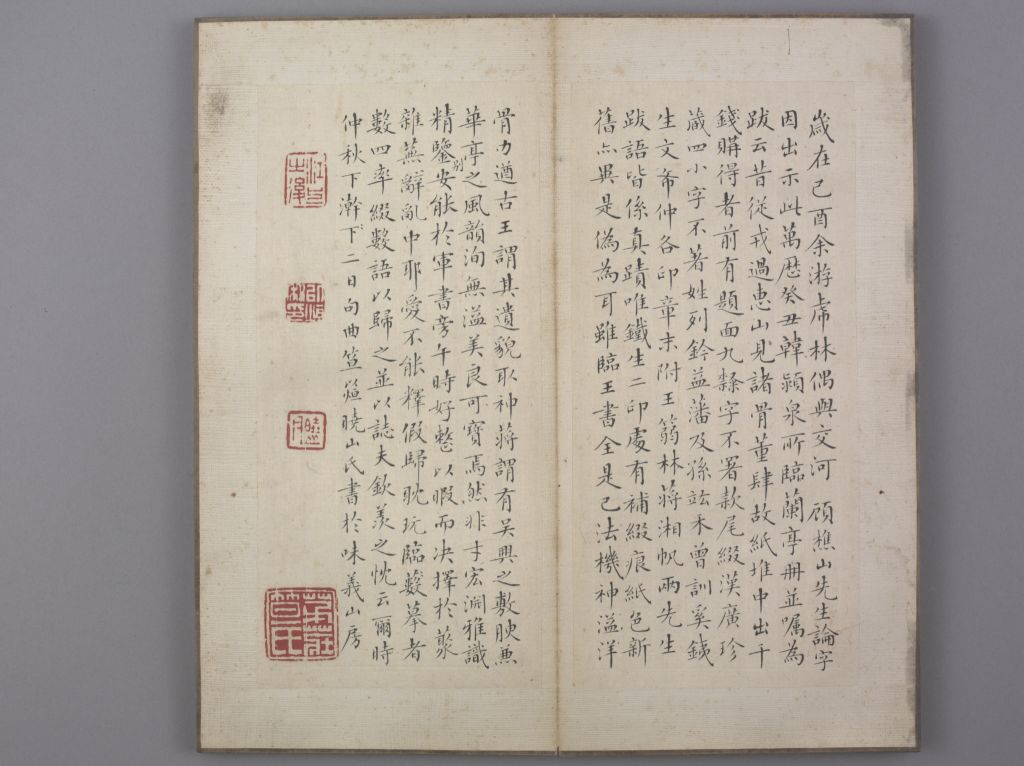 歲在己酉余游虎林偶與交河 顧樵山先生論字
因出示此萬歷癸丑韓潁泉所臨蘭亭冊並囑為
跋云昔從戎過惠山見諸骨董肆故紙堆中出千
錢購得者前有題面九隸字不署款尾綴漢廣珍
藏四小字不著姓列鈐益藩及孫竑禾曾訓奚銕
生文㐲仲各印章末附王蒻林蔣湘帆兩先生
跋語皆係真蹟唯鐵生二印處有補綴痕紙色新
舊亦異是偽為耳雖臨王書全是己法機神溢洋
骨力遒古王謂其遺貌取神蔣謂有吳興之敷腴無
華亭之風韻洵無溢美良可寶焉然非才宏淵雅識
精鑒別安能於軍書旁午時好整以暇而决擇於叢
雜蕪辭亂中耶愛不能釋假歸耽玩臨藂摹者
數四率綴數語以歸之並以誌夫欽羨之忱云爾時
仲秋下澣下二日句曲笪䉣曉山氏書於味義山房
曉山
笪氏